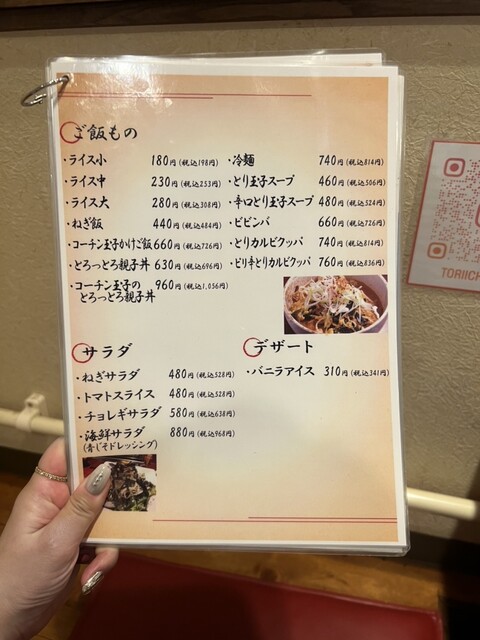 ご飯もの
・ライス小 180円(税込198円)
・ライス中 230円(税込253円)
・ライス大 280円(税込308円)
・ねぎ飯 440円(税込484円)
・コーチン玉子かけご飯 660円(税込726円)
・とろっとろ親子丼 630円(税込696円)
・コーチン玉子の
とろっとろ親子丼 960円(税込1,056円)
・冷麺 740円(税込814円)
・とり玉子スープ 460円(税込506円)
・辛口とり玉子スープ 480円(税込524円)
・ビビンバ 660円(税込726円)
・とりカルビクッパ 740円(税込814円)
・ピリ辛とりカルビクッパ 760円(税込836円)
サラダ
・ねぎサラダ 480円(税込528円)
・トマトスライス 480円(税込528円)
・チョレギサラダ 580円(税込638円)
・海鮮サラダ 880円(税込968円)
(青じそドレッシング)
デザート
・バニラアイス 310円(税込341円)
TORIICH